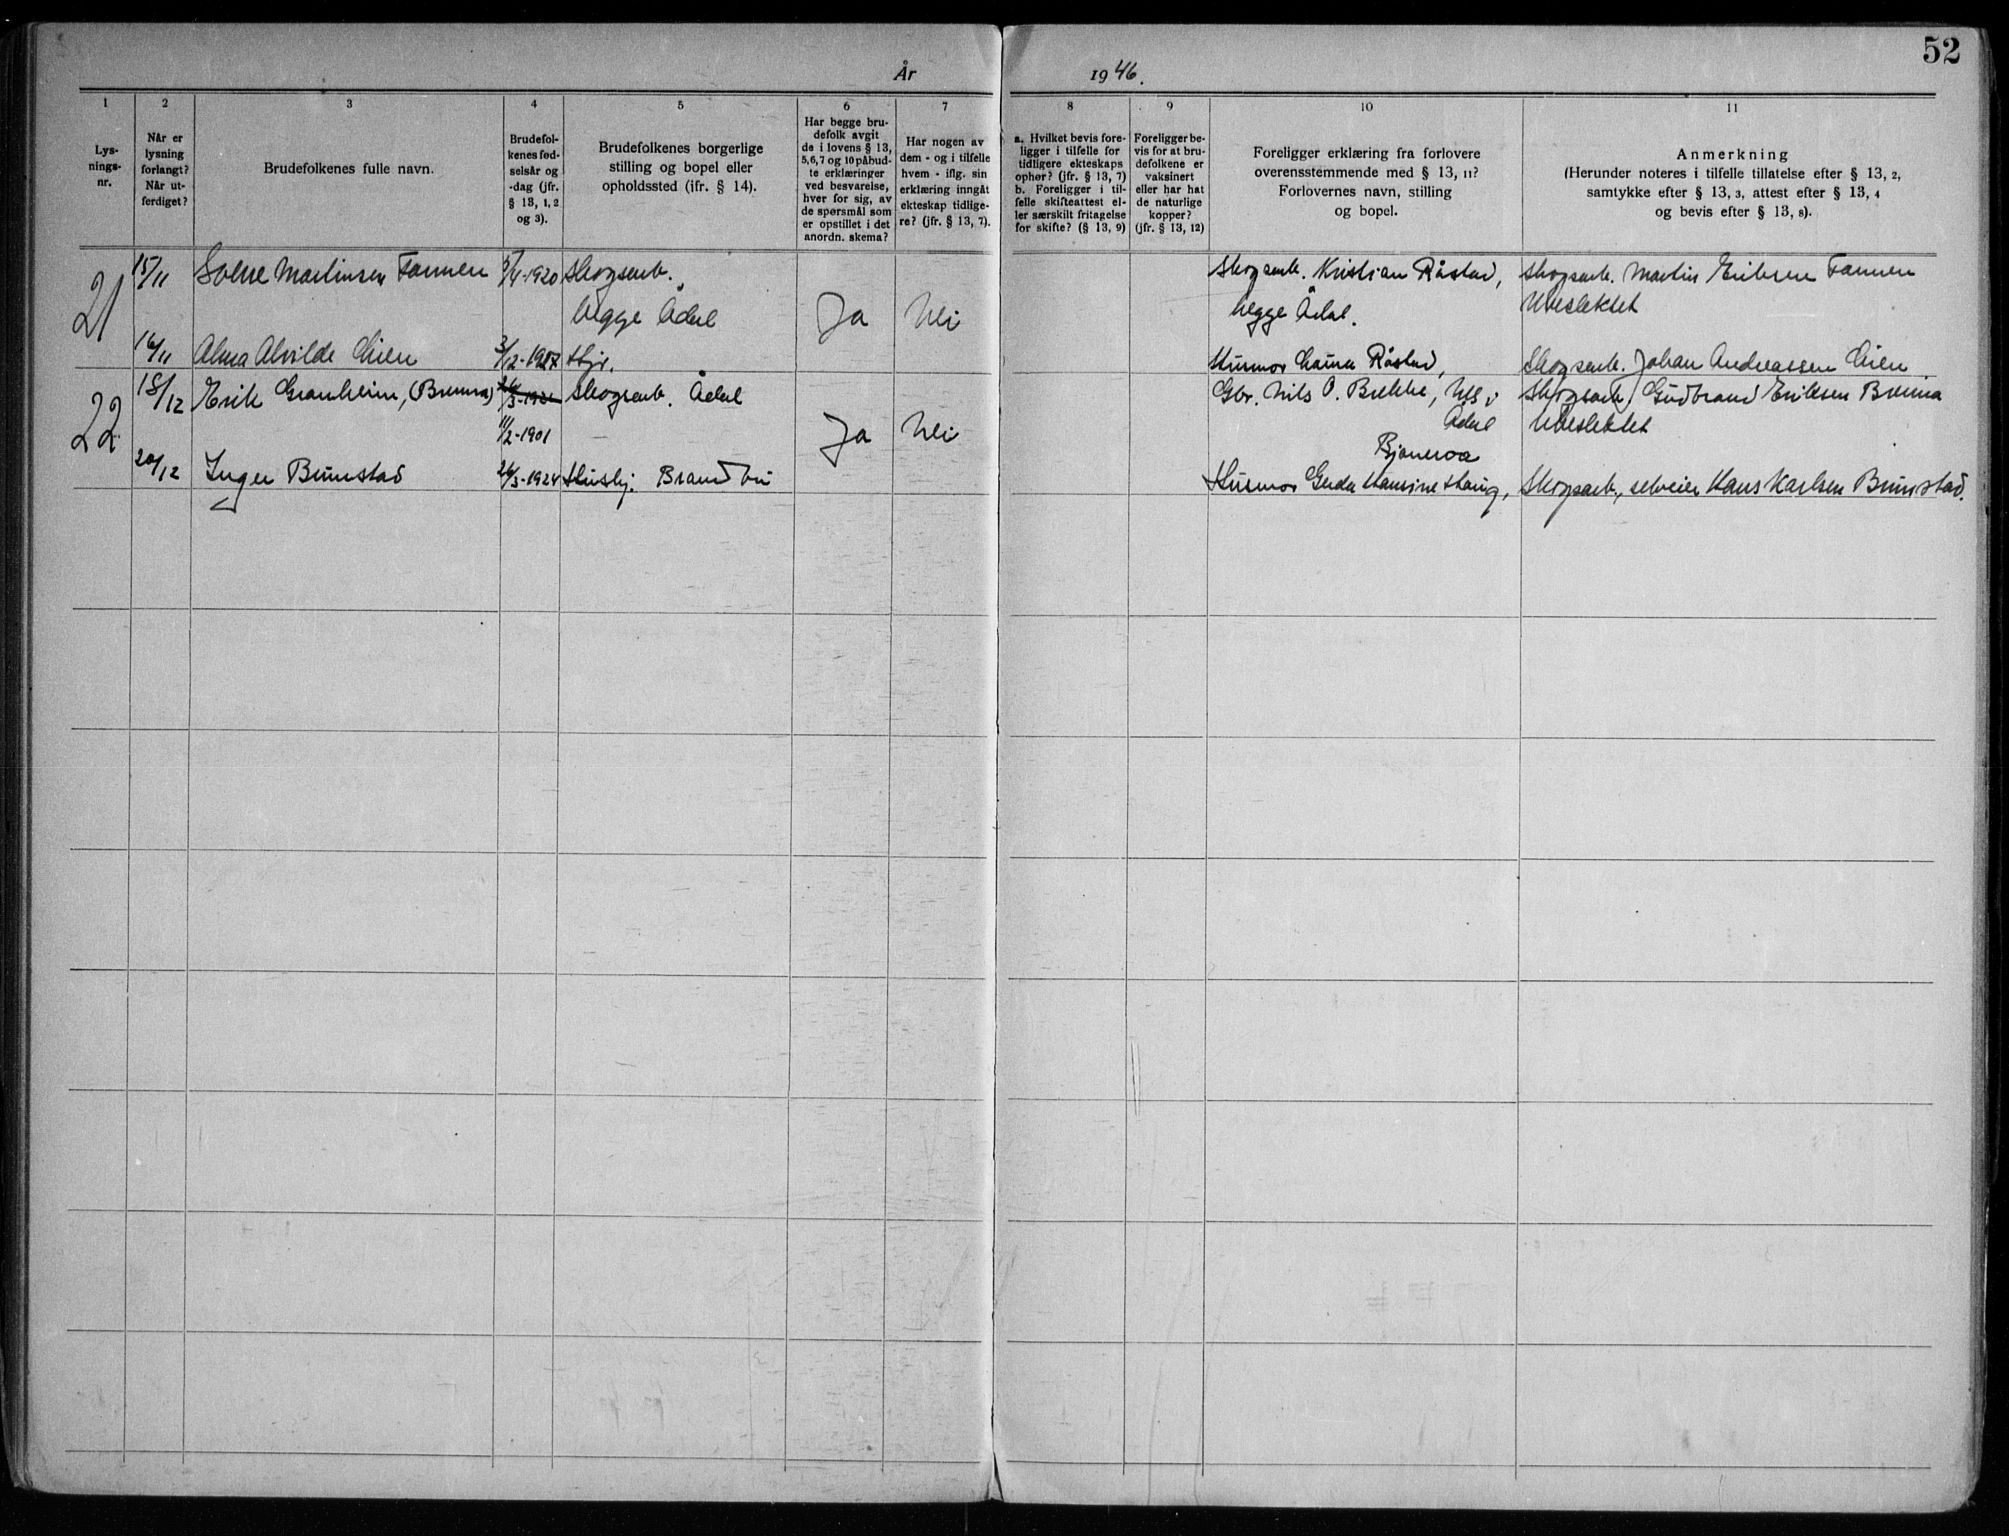 52
År 1946.
1 2 3 4 5 6 7 8 9 10 11
Lys-
nings-
nr.
Når er
lysning
forlangt?
Når ut-
ferdiget?
Brudefolkenes fulle navn.
Brudefol-
kenes fød-
selsår og
-dag (jfr.
§ 13, 1, 2
og 3).
Brudefolkenes borgerlige
stilling og bopel eller
opholdssted (jfr. § 14).
Har begge bru-
defolk avgit
de i lovens § 13,
5,6,7 og 10 påbud-
te erklæringer
ved besvarelse,
hver for sig, av
de spørsmål som
er opstillet i det
anordn. skema?
Har nogen av
dem - og i tilfelle
hvem - iflg. sin
erklæring inngåt
ekteskap tidlige-
re? (jfr. § 13, 7).
a. Hvilket bevis fore-
ligger i tilfelle for
tidligere ekteskaps
ophør? (jfr. § 13, 7)
b. Foreligger i til-
felle skifteattest el-
ler særskilt fritagelse
for skifte? (§ 13, 9)
Foreligger be-
vis for at bru-
defolkene er
vaksinert
eller har hat
de naturlige
kopper?
(jfr. § 13, 12)
Foreligger erklæring fra forlovere
overensstemmende med § 13, 11?
Forlovernes navn, stilling
og bopel.
Anmerkning
(Herunder noteres i tilfelle tillatelse efter § 13, 2,
samtykke efter § 13, 3, attest efter § 13, 4
og bevis efter § 13, 8).
21
15/11 Martinsen /4-1920 Skogsarb.
begge Ådal
Ja Nei
Skogsarb. Kristian Råstad,
begge Ådal.
Skogsarb. Martin Eriksen
Ubeslektet
16/11 Alma Alvilde Lien 3/12-1927 Hjv.
Husmor Råstad,
Skogsarb. Johan Andreassen Lien
22
18/12 Erik Granheim, (Brenna) Skogsarb. Ådal
11/2-1901
Ja Nei
Gbr. Nils O. Brekke, Nes i
Ådal
Skogsarb. Gudbrand Eriksen Brenna
Ubeslektet
20/12 Inger Bunstad 26/3-1924 Hushj. Brandbu
Bjoneroa
Husmor Gerda Hansine Haug,
Skogsarb., selveier Hans Karlsen Bunstad.